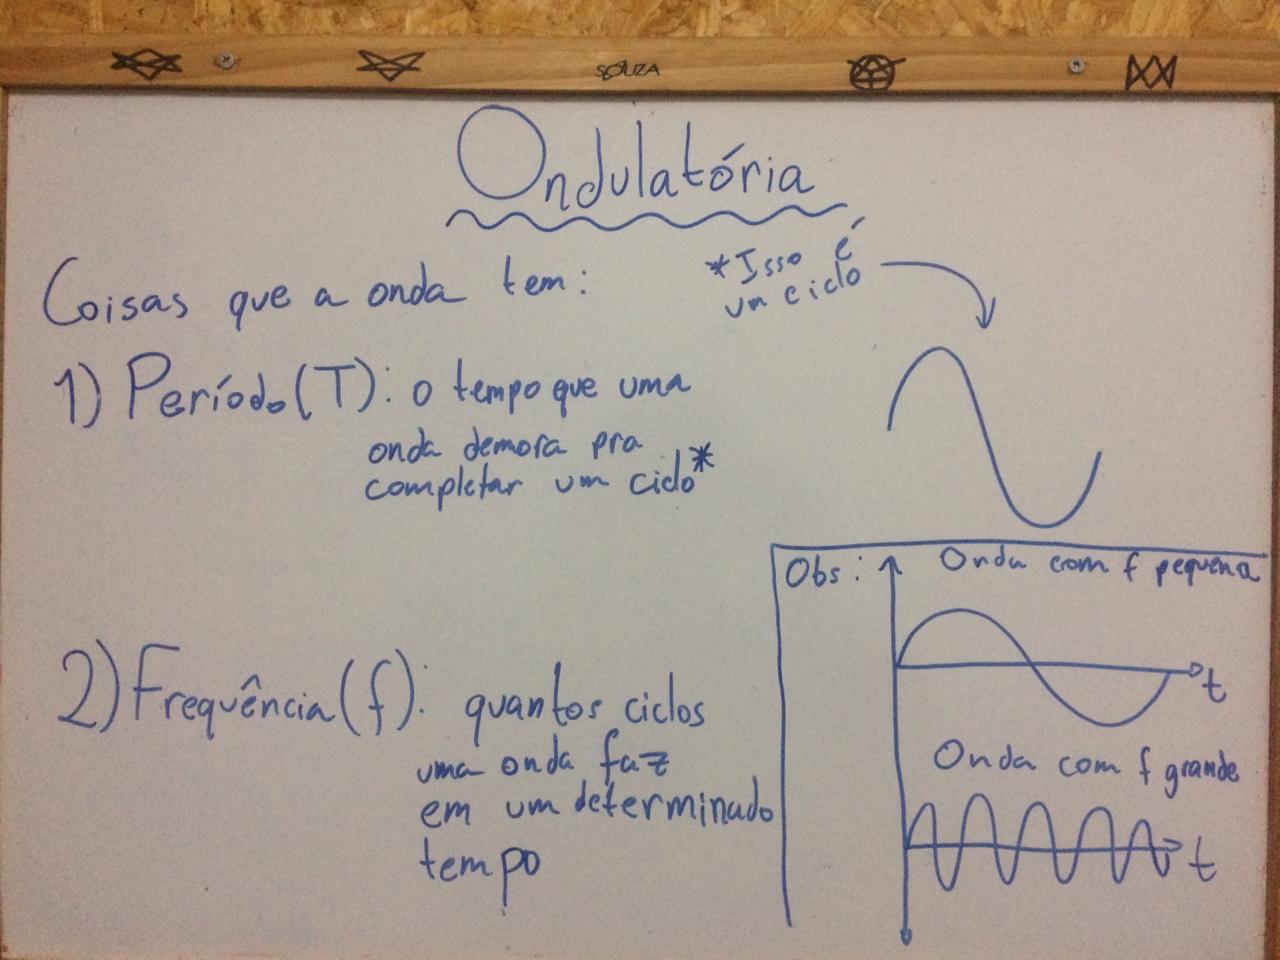 SOUZA
Ondulatória
Coisas que a onda tem:
*Isso é
um ciclo
1) Período(T): o tempo que uma
onda demora pra
completar um ciclo*
2) Frequência(f): quantos ciclos
uma onda faz
em um determinado
tempo
Obs: Onda com f pequena
t
Onda com f grande
t